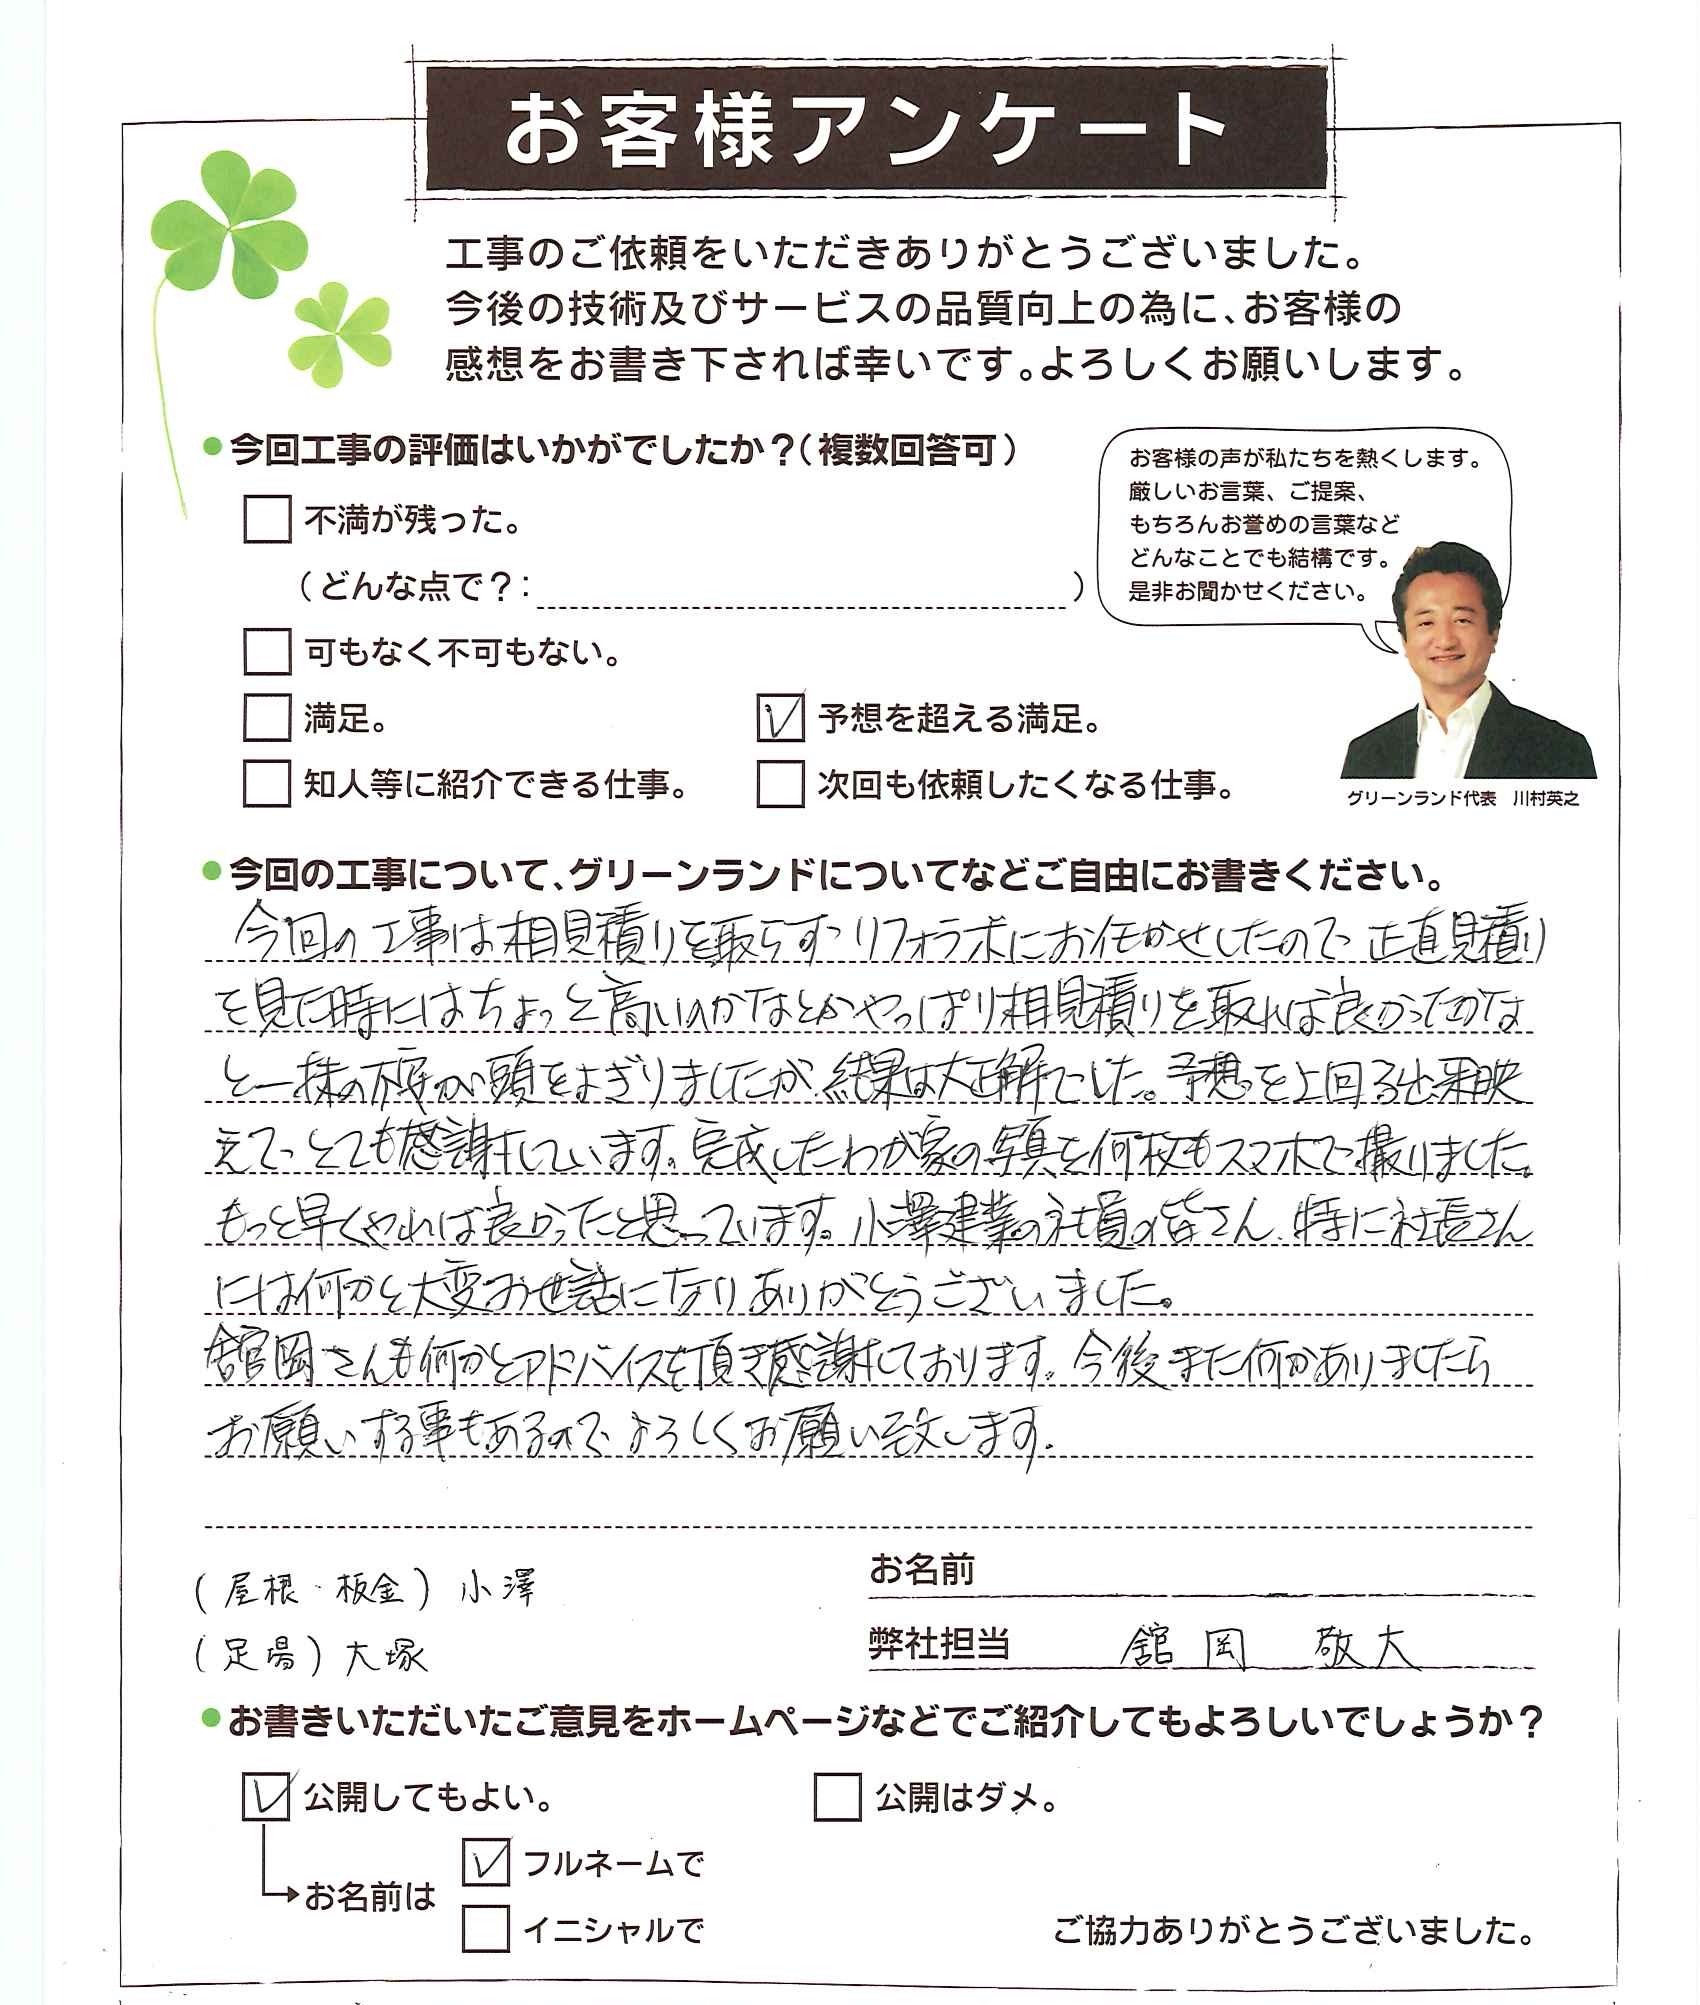 お客様アンケート
工事のご依頼をいただきありがとうございました。
今後の技術及びサービスの品質向上の為に、お客様の
感想をお書き下されば幸いです。よろしくお願いします。
●今回工事の評価はいかがでしたか?(複数回答可)
お客様の声が私たちを熱くします。
厳しいお言葉、ご提案、
もちろんお誉めの言葉など
どんなことでも結構です。
是非お聞かせください。
不満が残った。
(どんな点で?: )
可もなく不可もない。
満足。
予想を超える満足。
知人等に紹介できる仕事。
次回も依頼したくなる仕事。
グリーンランド代表 川村英之
●今回の工事について、グリーンランドについてなどご自由にお書きください。
今回の工事は相見積りを取らずリフォラボにお任かせしたので正直見積り
を見た時にはちょっと高いのかなとかやっぱり相見積りを取れば良かったかな
と一抹の不安が頭をよぎりましたが、結果は大正解でした。予想を上回る出来映
えで、とても感謝しています。完成したわが家の写真を何枚もスマホで撮りました。
もっと早くやれば良かったと思っています。小澤建業の社員の皆さん、特に社長さん
には何かと大変お世話になりありがとうございました。
舘岡さんも何かとアドバイスを頂き感謝しております。今後また何かありましたら
お願いする事もあるのでよろしくお願い致します。
(屋根・板金) 小澤
お名前
(足場) 大塚
弊社担当 舘岡 敬大
●お書きいただいたご意見をホームページなどでご紹介してもよろしいでしょうか?
公開してもよい。
公開はダメ。
お名前は
フルネームで
イニシャルで
ご協力ありがとうございました。